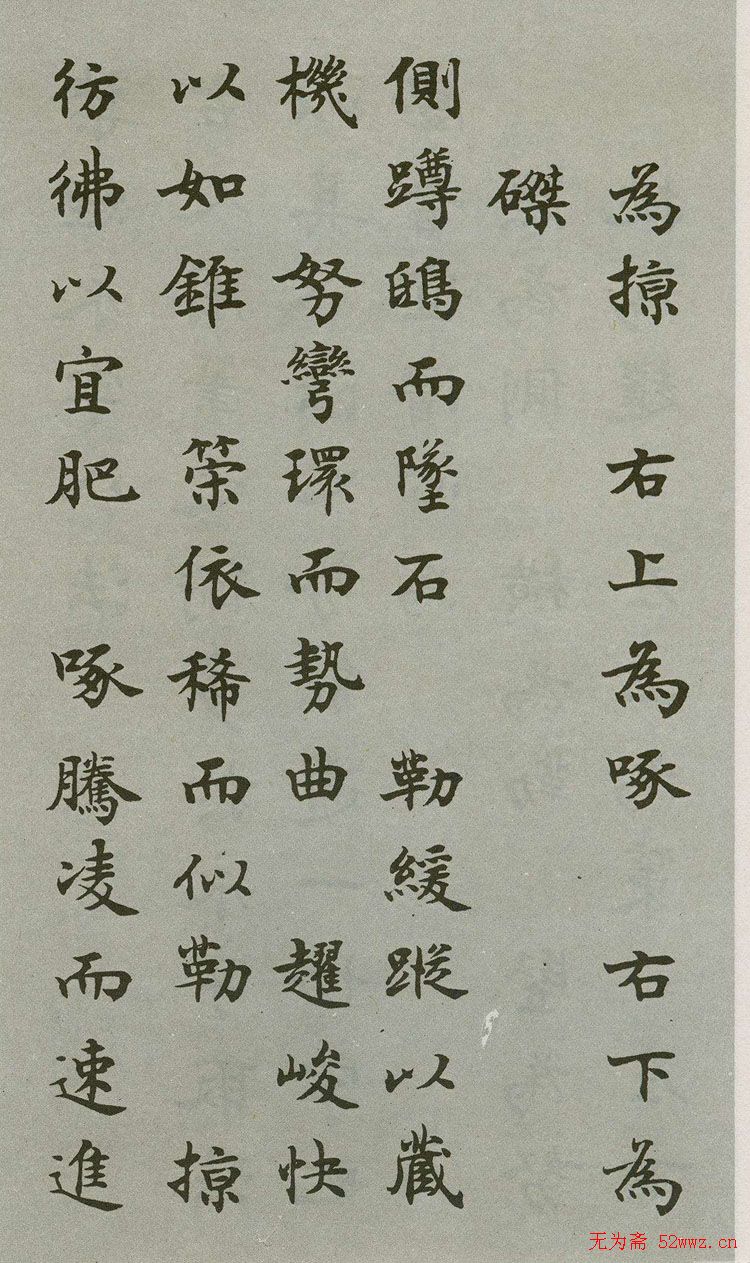 為掠 右上為啄 右下為
磔
側蹲鴟而墜石 勒緩蹤以藏
機 努彎環而勢曲 趯峻快
以如錐 策依稀而似勒 掠
彷彿以宜肥 啄騰凌而速進
无为斋 52wwz.cn